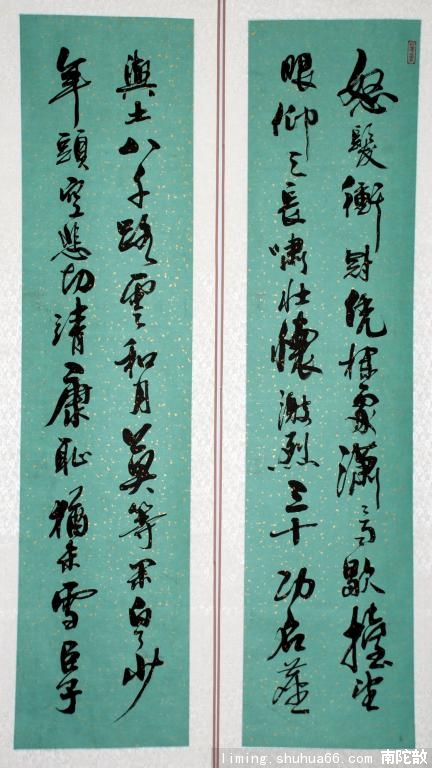 怒髮衝冠凭栏處瀟々雨歇擡望
眼仰天長嘯壯懷激烈三十功名塵
與土八千路雲和月莫等閑白了少
年頭空悲切靖康恥猶未雪臣子
liming.shuhua66.com